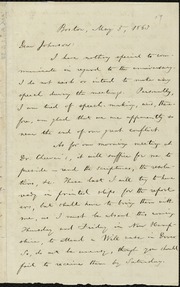 Boston, May 5, 1863
Dear Johnson:
I have nothing special to com-
municate in regard to the anniversary.
I do not seek or intend to make any
speech during the meetings. Presently,
I am tired of speech-making, and, there-
fore, am glad that we are apparently so
near the end of our great conflict.
As for our morning meeting at
Dr. Cheever's, it will suffice for me to
preside & read the scriptures, the resolu-
tions, &c. These last I will try to have
ready in printed slips for the report-
ers, but shall have to bring them with
me, as I must be absent this coming
Thursday and Friday in New Hamp-
shire, to attend a Will case in Dover
So, do not be uneasy, though you should
fail to receive them by Saturday.